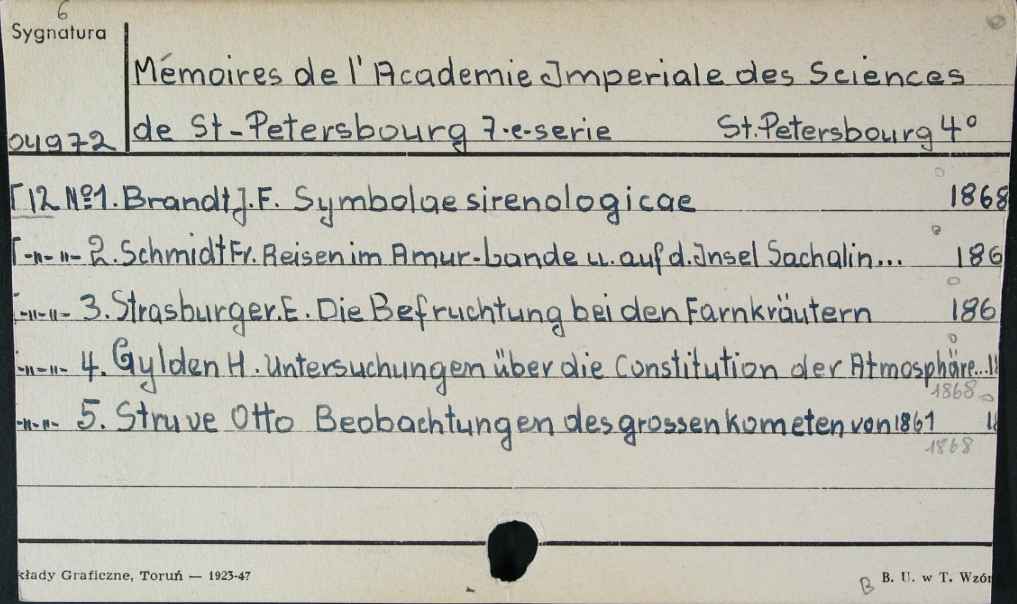 6
Sygnatura
Mémoires de l'Academie Imperiale des Sciences
04972 de St-Petersbourg 7-e-serie St. Petersbourg 4°
T 12 Nº1. Brandt J. F. Symbolae sirenologicae 1868
T -"- "- 2. Schmidt Fr. Reisen im Amur-lande u. auf d. Insel Sachalin... 186
T -"-"- 3. Strasburger. E. Die Befruchtung bei den Farnkräutern 186
-"-"- 4. Gylden H. Untersuchungen über die Constitution der Atmosphäre...18
1868
-"-"- 5. Struve Otto Beobachtungen des grossen Kometen von 1861 18
1868
kłady Graficzne, Toruń — 1923-47
B B. U. w T. Wzór